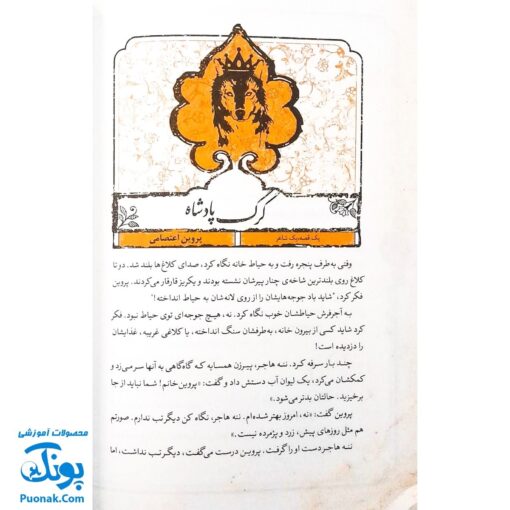 گرگ پادشاه
یک قصه، یک شاعر
پروین اعتصامی
وقتی به‌طرف پنجره رفت و به حیاط خانه نگاه کرد، صدای کلاغ‌ها بلند شد. دو تا
کلاغ روی بلندترین شاخه‌ی چنار پیرشان نشسته بودند و یکریز قارقار می‌کردند. پروین
فکر کرد، "شاید باد جوجه‌هایشان را از روی لانه‌شان به حیاط انداخته!"
به آجرفرش حیاطشان خوب نگاه کرد. نه، هیچ جوجه‌ای توی حیاط نبود. فکر
کرد شاید کسی از بیرون خانه، به‌طرفشان سنگ انداخته، یا کلاغی غریبه، غذایشان
را دزدیده است!
چند بار سرفه کرد. ننه هاجر، پیرزن همسایه که گاه‌گاهی به آنها سر می‌زد و
کمکشان می‌کرد، یک لیوان آب دستش داد و گفت: «پروین‌خانم! شما نباید از جا
برخیزید. حالتان بدتر می‌شود.»
پروین گفت: «نه، امروز بهتر شده‌ام. ننه هاجر، نگاه کن دیگر تب ندارم. صورتم
هم مثل روزهای پیش، زرد و پژمرده نیست.»
ننه هاجر دست او را گرفت. پروین درست می‌گفت، دیگر تب نداشت، اما
محصولات آموزشی
پونک
Puonak.Com